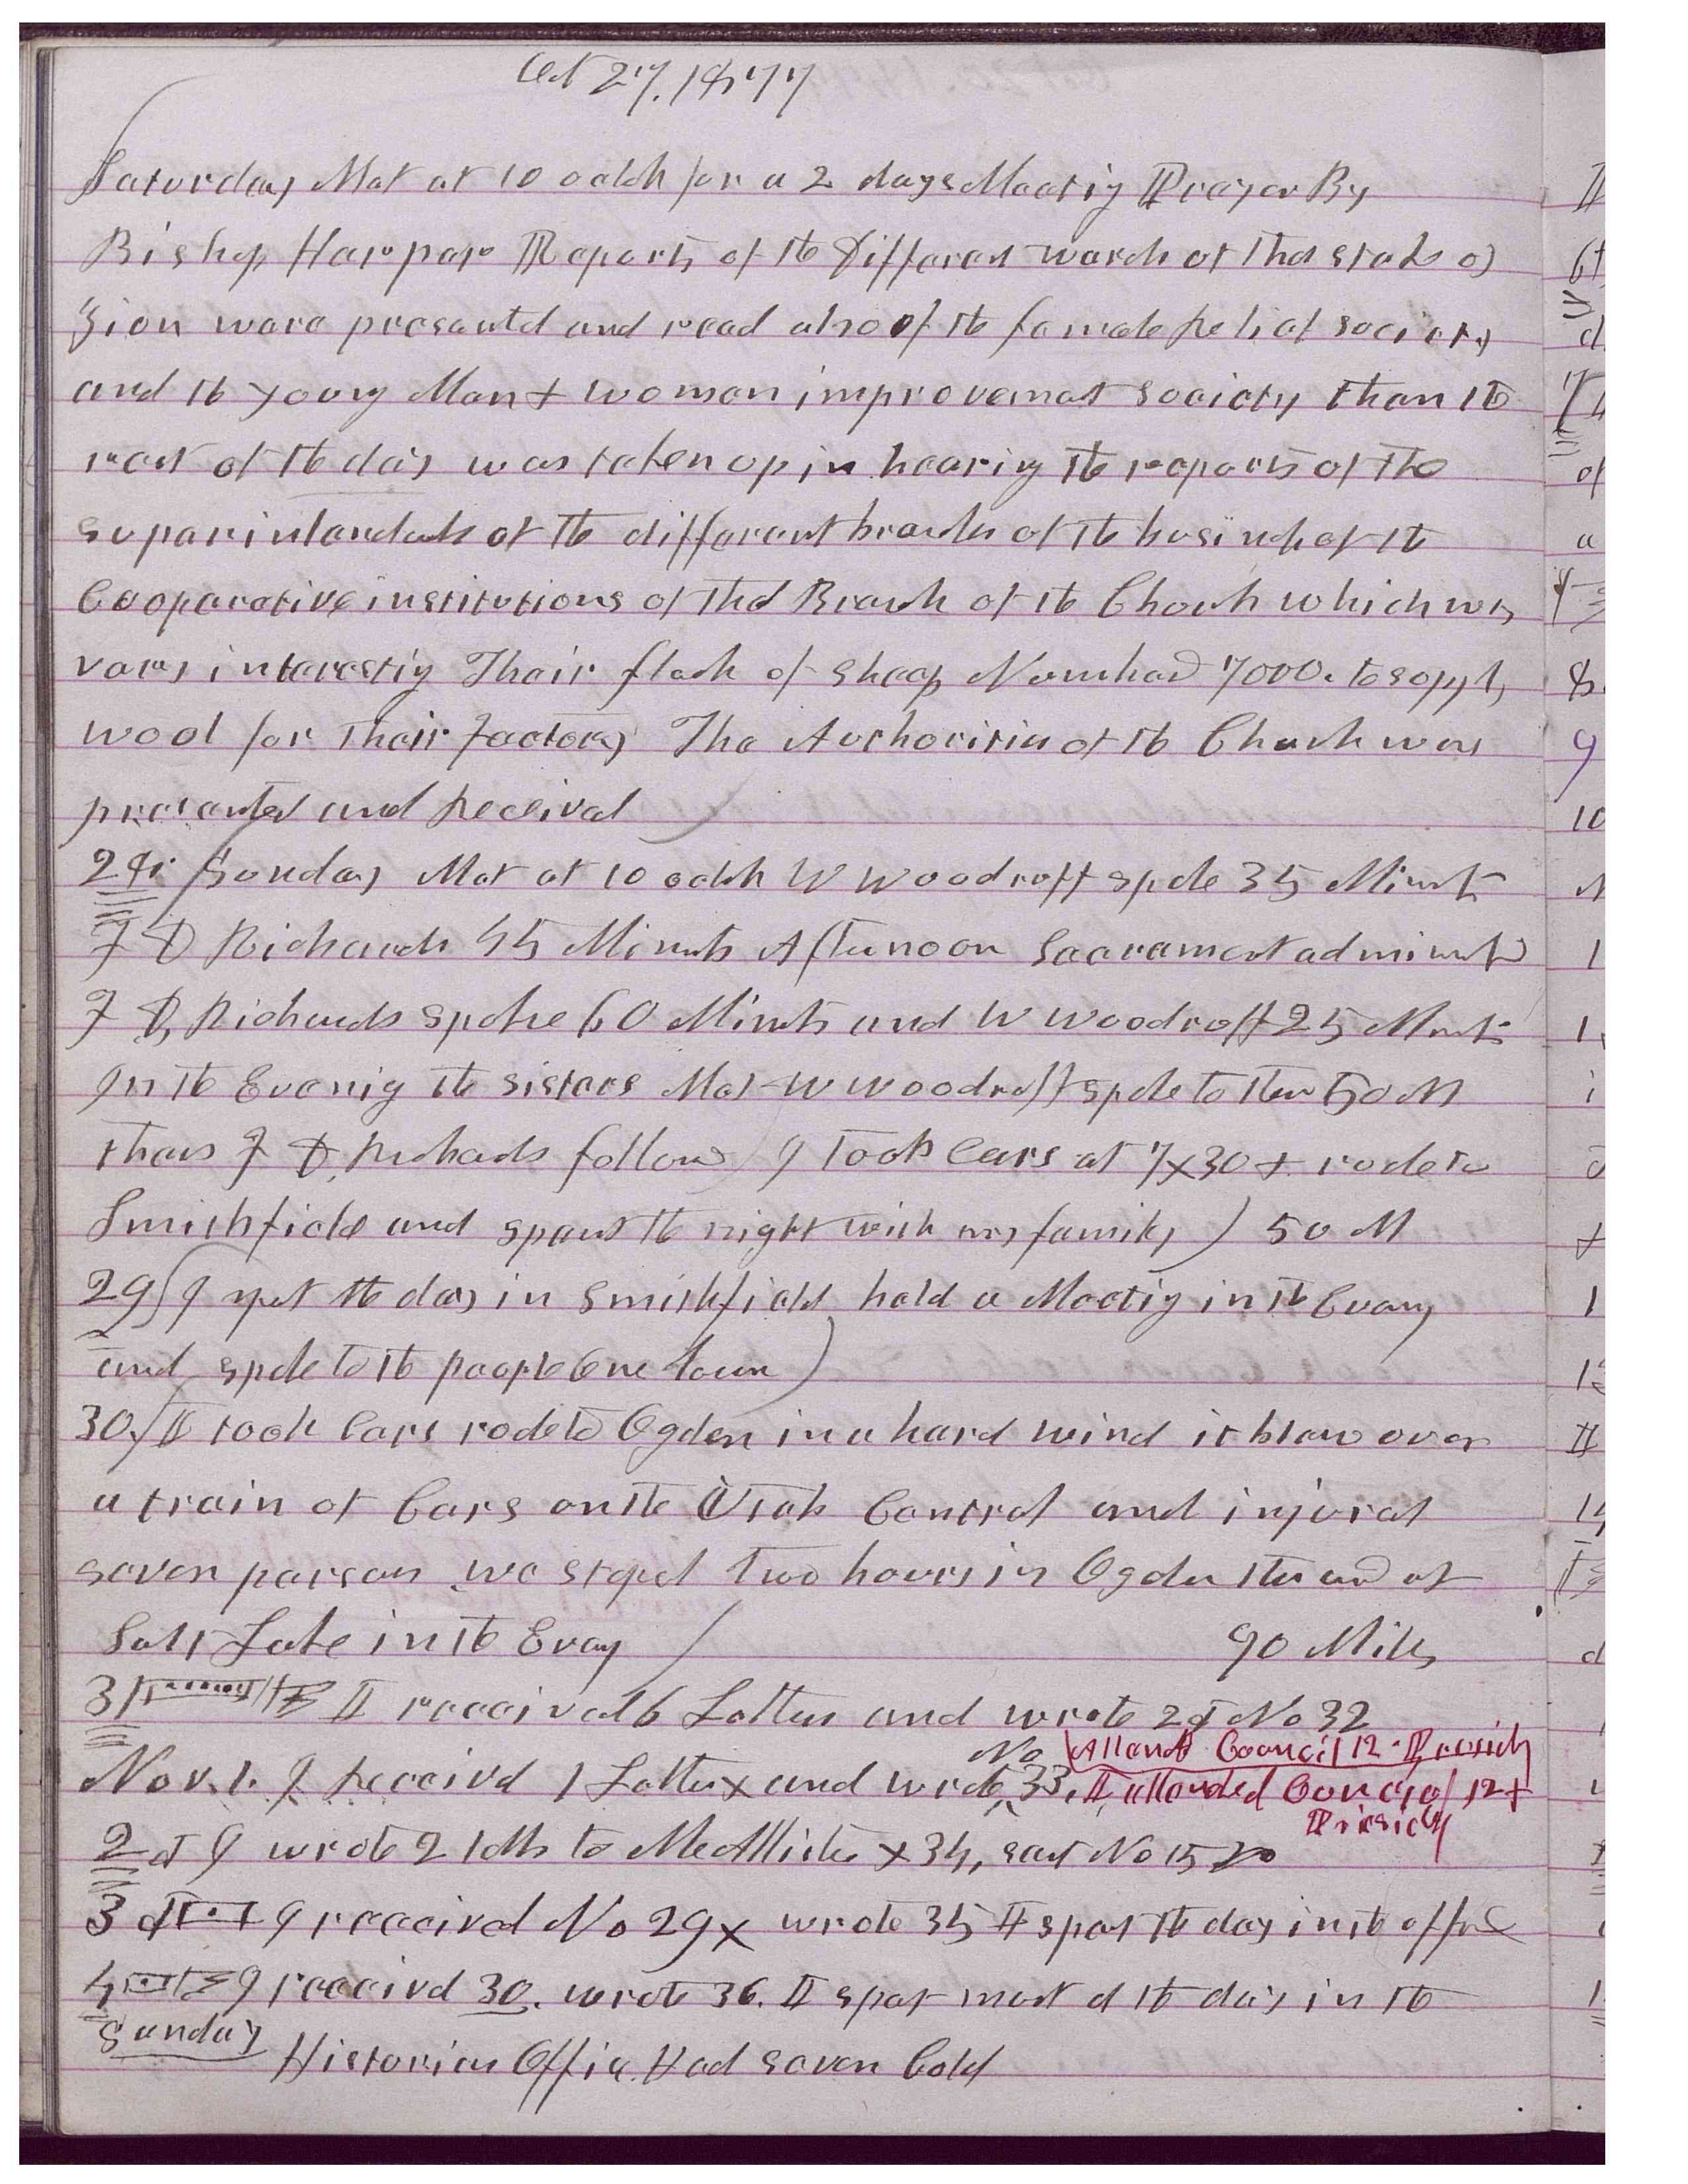 Oct 27. 1877
Saturday Met at 10 oclok for a 2 days Meeting Prayer By
Bishop Harper Reports of the Different wards of that stake of
Zion ware presented and read also of the female Relief society
and the young Men & women improvement Society then the
rest of the day was taken up in hearing the reports of the
superintendents of the different branches of the business of the
Cooparative institutions of that Branch of the Church which was
very interesting Their flock of sheep Numbered 7000. to supply
wool for their factory The Authorities of the Church were
presented and Received
28. Sunday Met at 10 oclok W Woodruff spoke 35 Minuts
F D Richards 45 Minuts Afternoon Sacrament administered
F D, Richards spoke 60 Minuts and W Woodruff 25 Minuts
In the Evenig the sisters Met W Woodruff spoke to them 50 M
then F D, Richards followed I took Cars at 7x30 & rode to
Smithfield and spent the night with my family) 50 M
29 I spent the day in Smithfield held a Meetig in the Eveng
and spoke to the people One hour)
30. I took Cars rode to Ogden in a hard wind it blew over
a train of Cars on the Utah Central and injured
seven person we stoped two hours in Ogden then arived at
Salt Lake in the Eveng / 90 Miles
31 I received 6 Letters and wrote 2 No 32
Attend Council 12. Presidy
Nov. 1. I Receivd 1 Letter x and wrote No 33. I attended Councel of 12 &
Presidey
2d I wrote 2 lettrs to McAllister x 34, sent No 15 20
3d I received No 29 x wrote 35 I spent the day in the office
4 I receivd 30. wrote 36. I spent most of the day in the
Sunday Historian Office. Had seven Cold